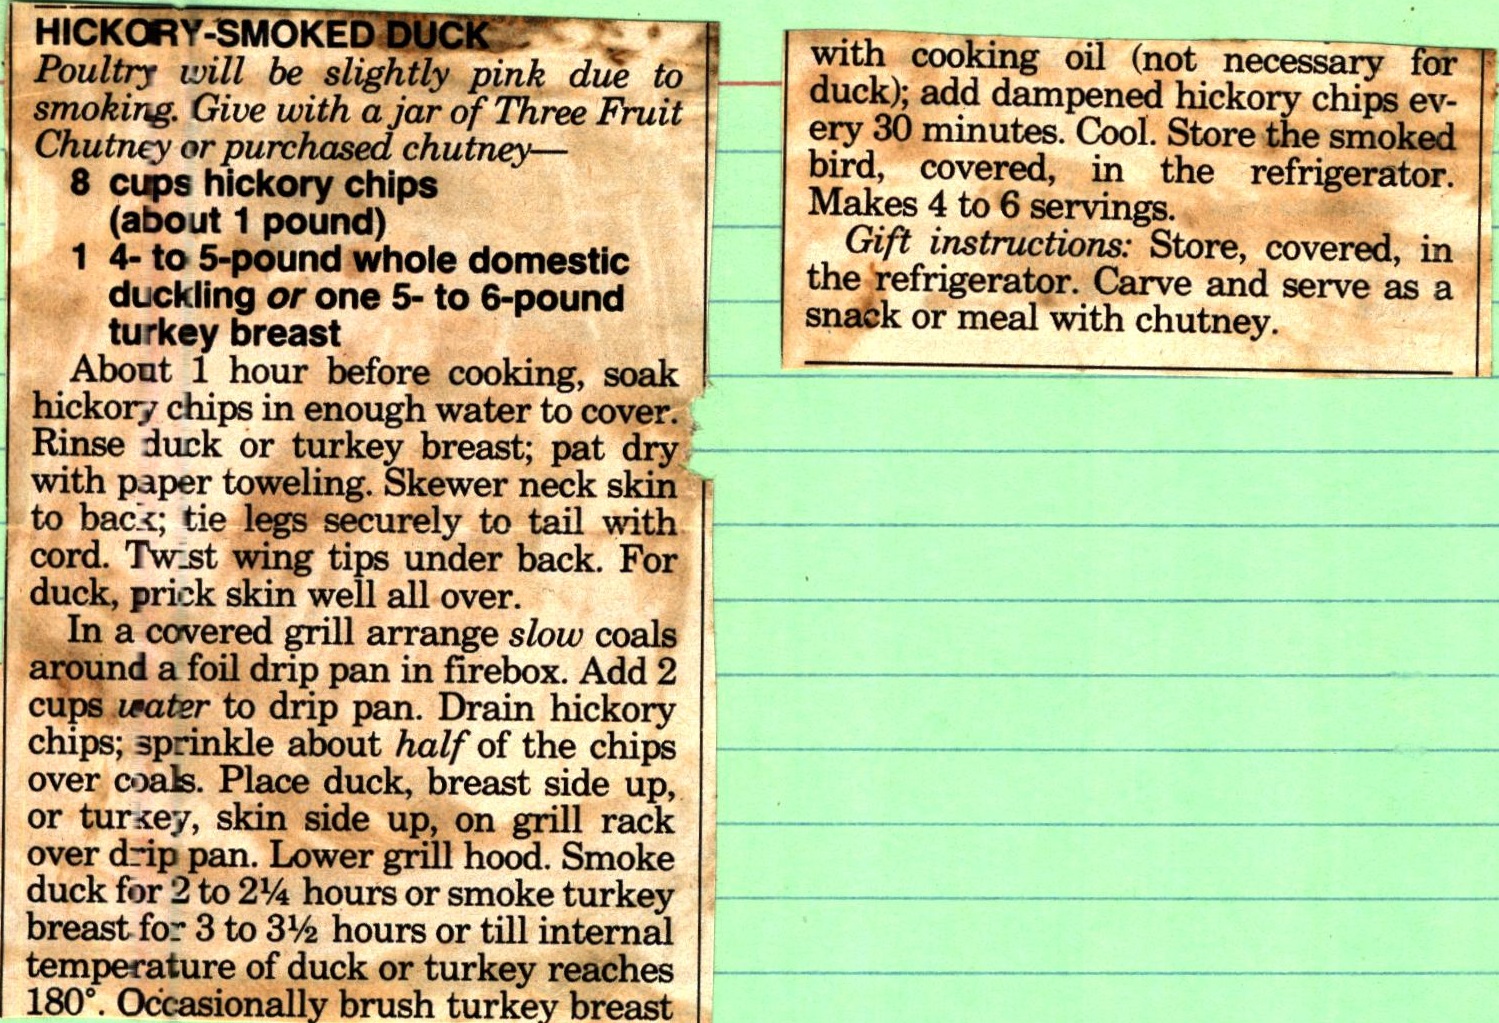 HICKORY-SMOKED DUCK
Poultry will be slightly pink due to
smoking. Give with a jar of Three Fruit
Chutney or purchased chutney—
8 cups hickory chips
(about 1 pound)
1 4- to 5-pound whole domestic
duckling or one 5- to 6-pound
turkey breast
About 1 hour before cooking, soak
hickory chips in enough water to cover.
Rinse duck or turkey breast; pat dry
with paper toweling. Skewer neck skin
to back; tie legs securely to tail with
cord. Twist wing tips under back. For
duck, prick skin well all over.
In a covered grill arrange slow coals
around a foil drip pan in firebox. Add 2
cups water to drip pan. Drain hickory
chips; sprinkle about half of the chips
over coals. Place duck, breast side up,
or turkey, skin side up, on grill rack
over drip pan. Lower grill hood. Smoke
duck for 2 to 2¼ hours or smoke turkey
breast for 3 to 3½ hours or till internal
temperature of duck or turkey reaches
180°. Occasionally brush turkey breast
with cooking oil (not necessary for
duck); add dampened hickory chips ev-
ery 30 minutes. Cool. Store the smoked
bird, covered, in the refrigerator.
Makes 4 to 6 servings.
Gift instructions: Store, covered, in
the refrigerator. Carve and serve as a
snack or meal with chutney.